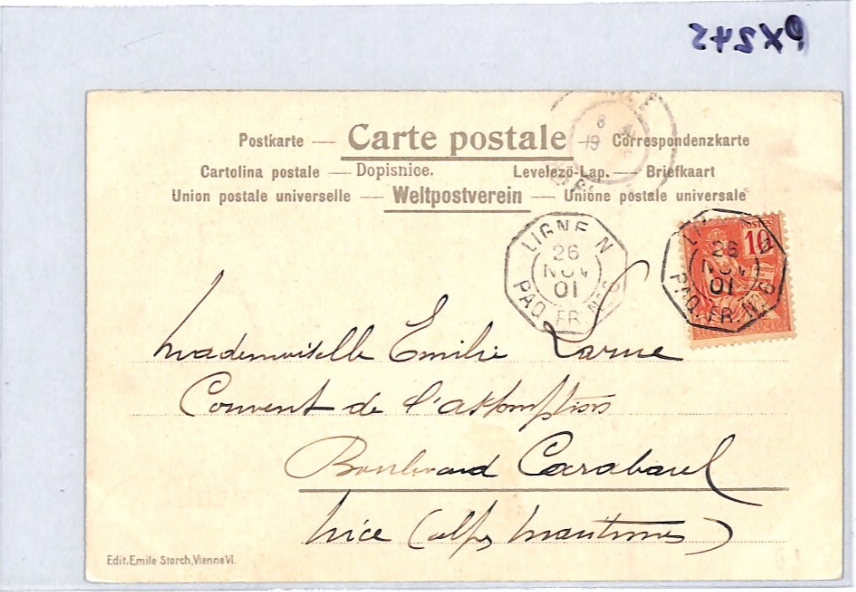 Postkarte — Carte postale — Correspondenzkarte
Cartolina postale — Dopisnice. Levelező-Lap. — Briefkaart
Union postale universelle — Weltpostverein — Unione postale universale
LIGNE N
26
NOV
01
PAQ. FR. No 6
10
POSTES
26
NOV
01
PAQ. FR. No 6
Mademoiselle Emilie Larue
Couvent de l'assomption
Boulevard Carabacel
Nice (alpes maritimes)
Edit. Emile Storch, Vienne VI.